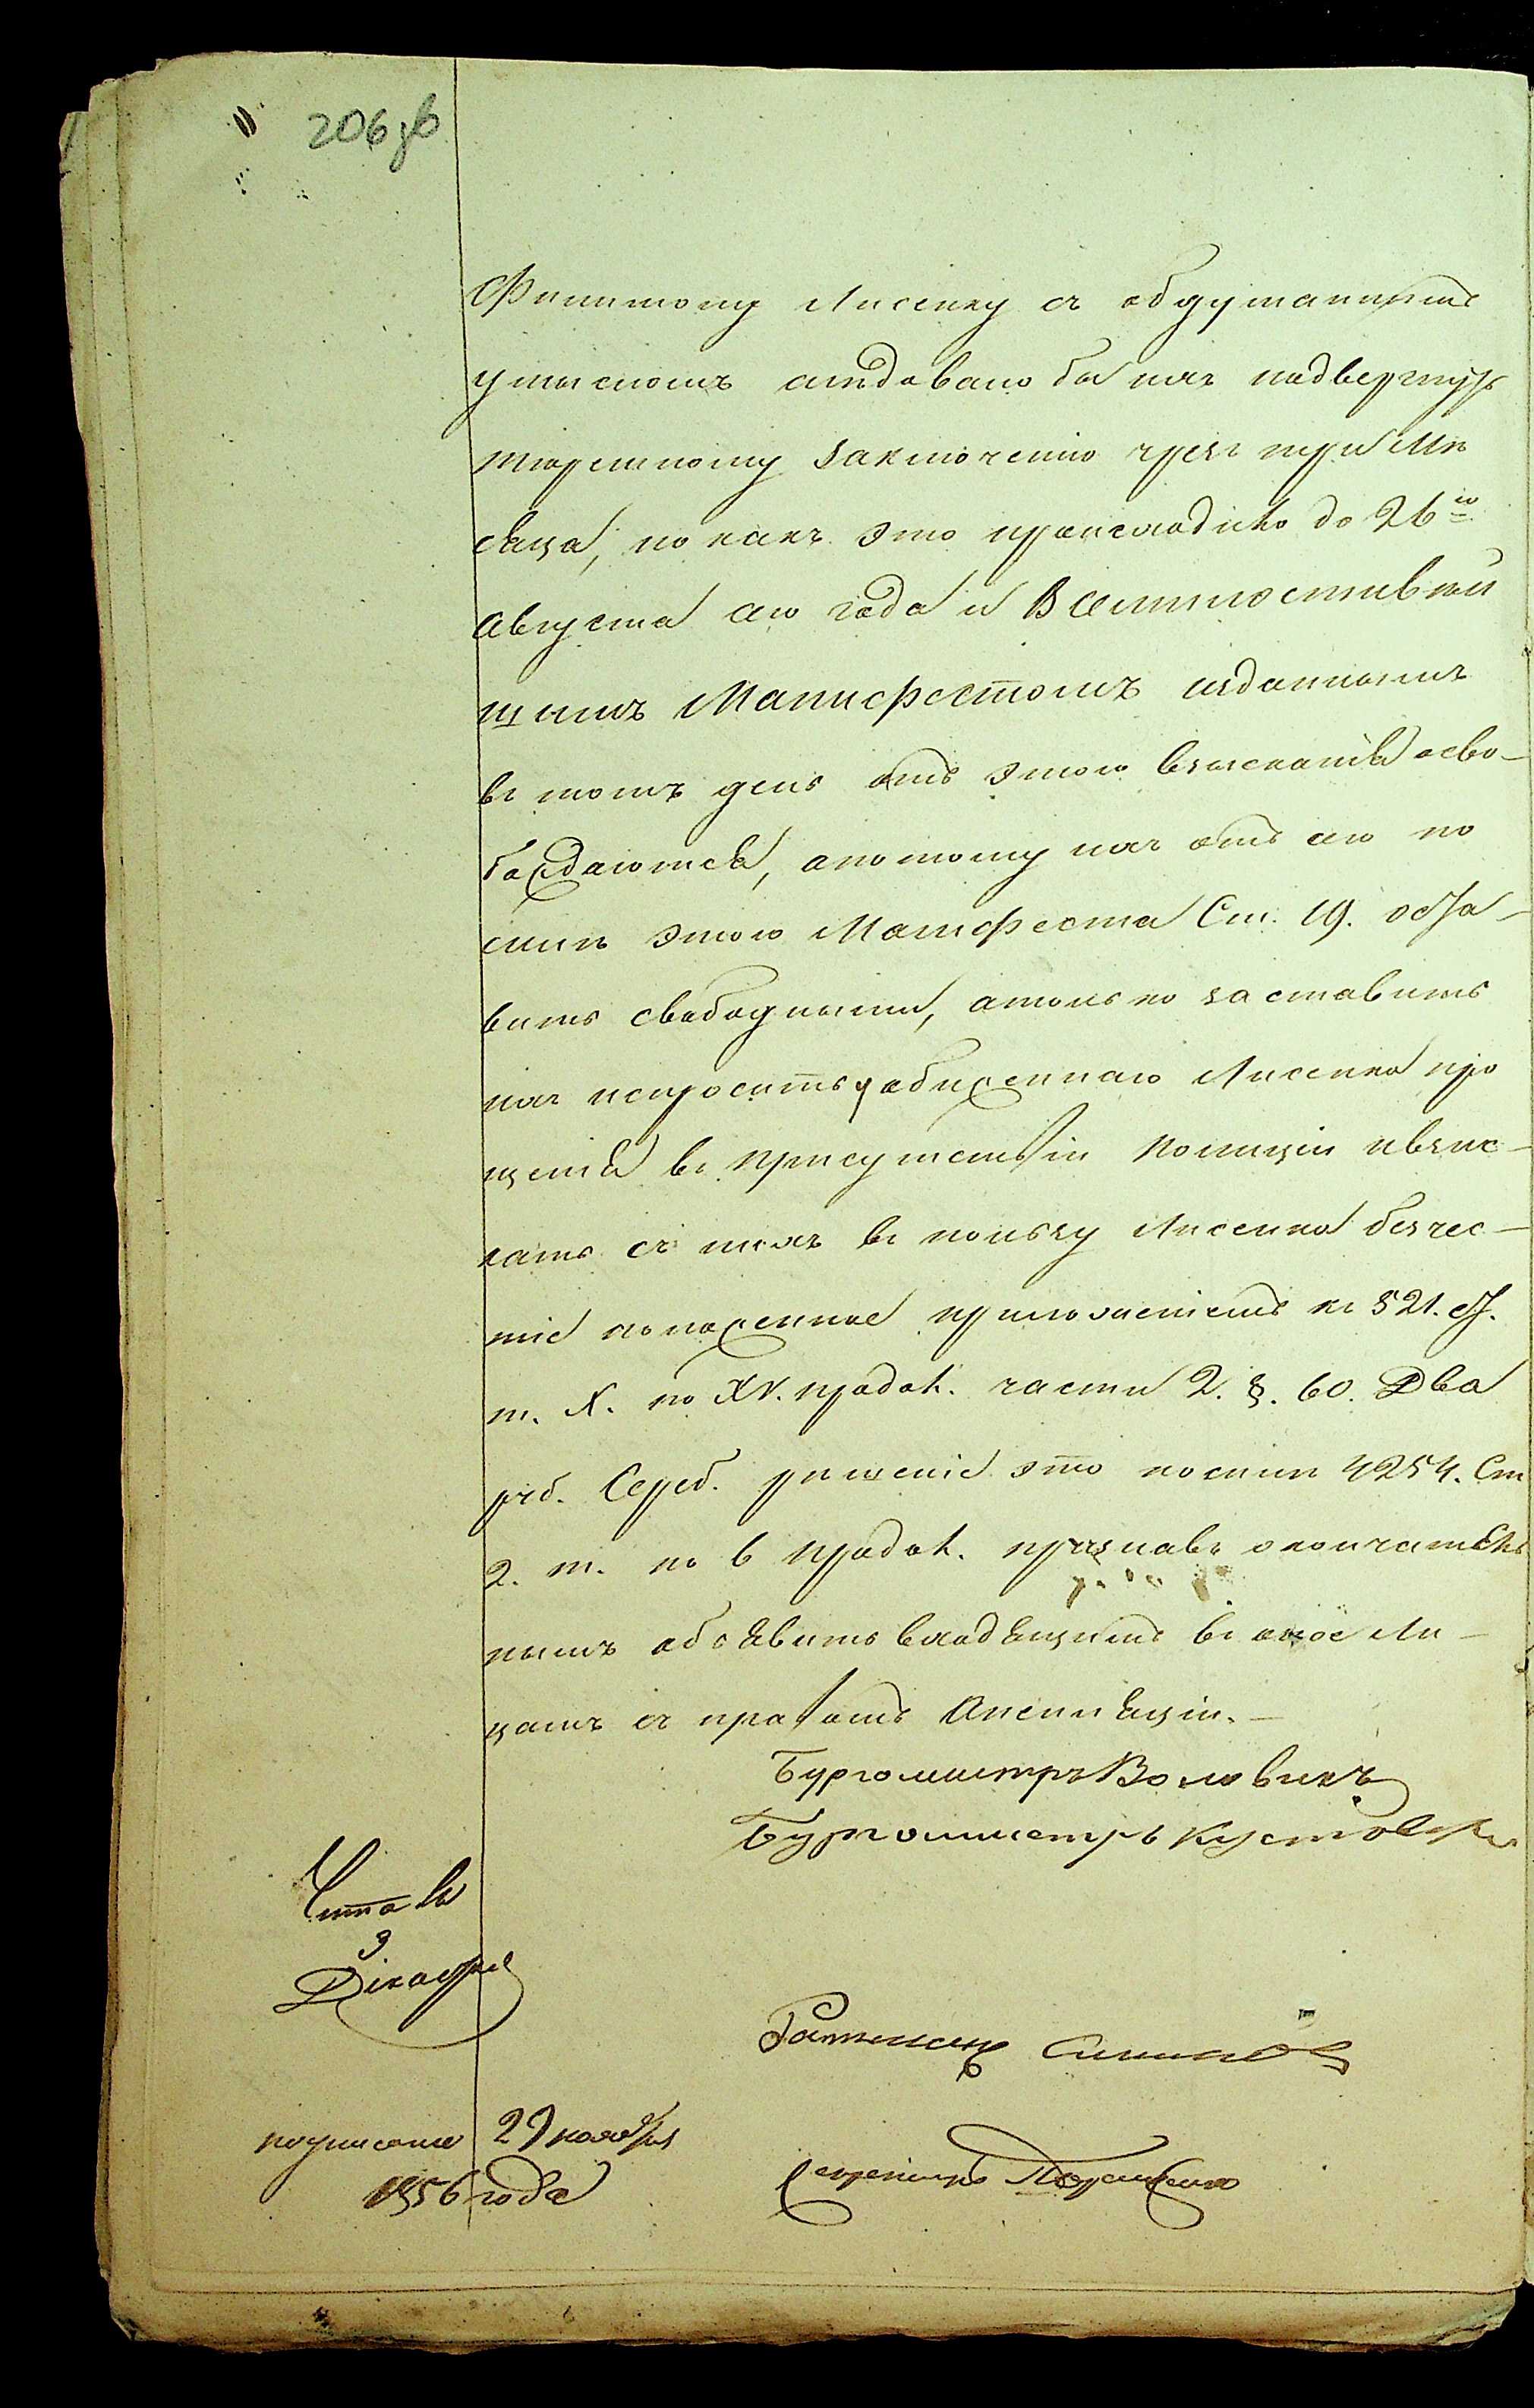 206 зв
Филипому Лисенку съ обдуманнымъ
умысломъ следовало бы ихъ подвергнуть
тюремному заключенію чрезъ три мѣ
сяца, но какъ это происходило до 26го
Августа сего года и Всемилостивѣй
шимъ Манифестомъ изданнымъ
въ тотъ день отъ этого взысканія осво-
бождаются, а потому ихъ отъ сего по
силѣ этого Манифеста Ст. 19. объя-
вить свободными, а только заставить
ихъ испросить у обиженнаго Лисенка про
щенія въ присутствіи Полиціи и взыс-
кать съ нихъ въ пользу Лисенка безчес-
тіе положенное приложеніемъ къ 521. ст.
т. X. по XV. продол. части 2. §. 60. Два
руб. Сереб. рѣшеніе это по силѣ 4254. Ст
2. т. по 6 продол. признавъ окончатель
нымъ объявить входящимъ въ оное Ли-
цамъ съ правомъ Апелляціи.-
Бургомистръ Воловикъ
Бургомистръ
Читалъ
3
Декабря
Ратманъ
подписано 29 ноября
1856 года
Секретарь